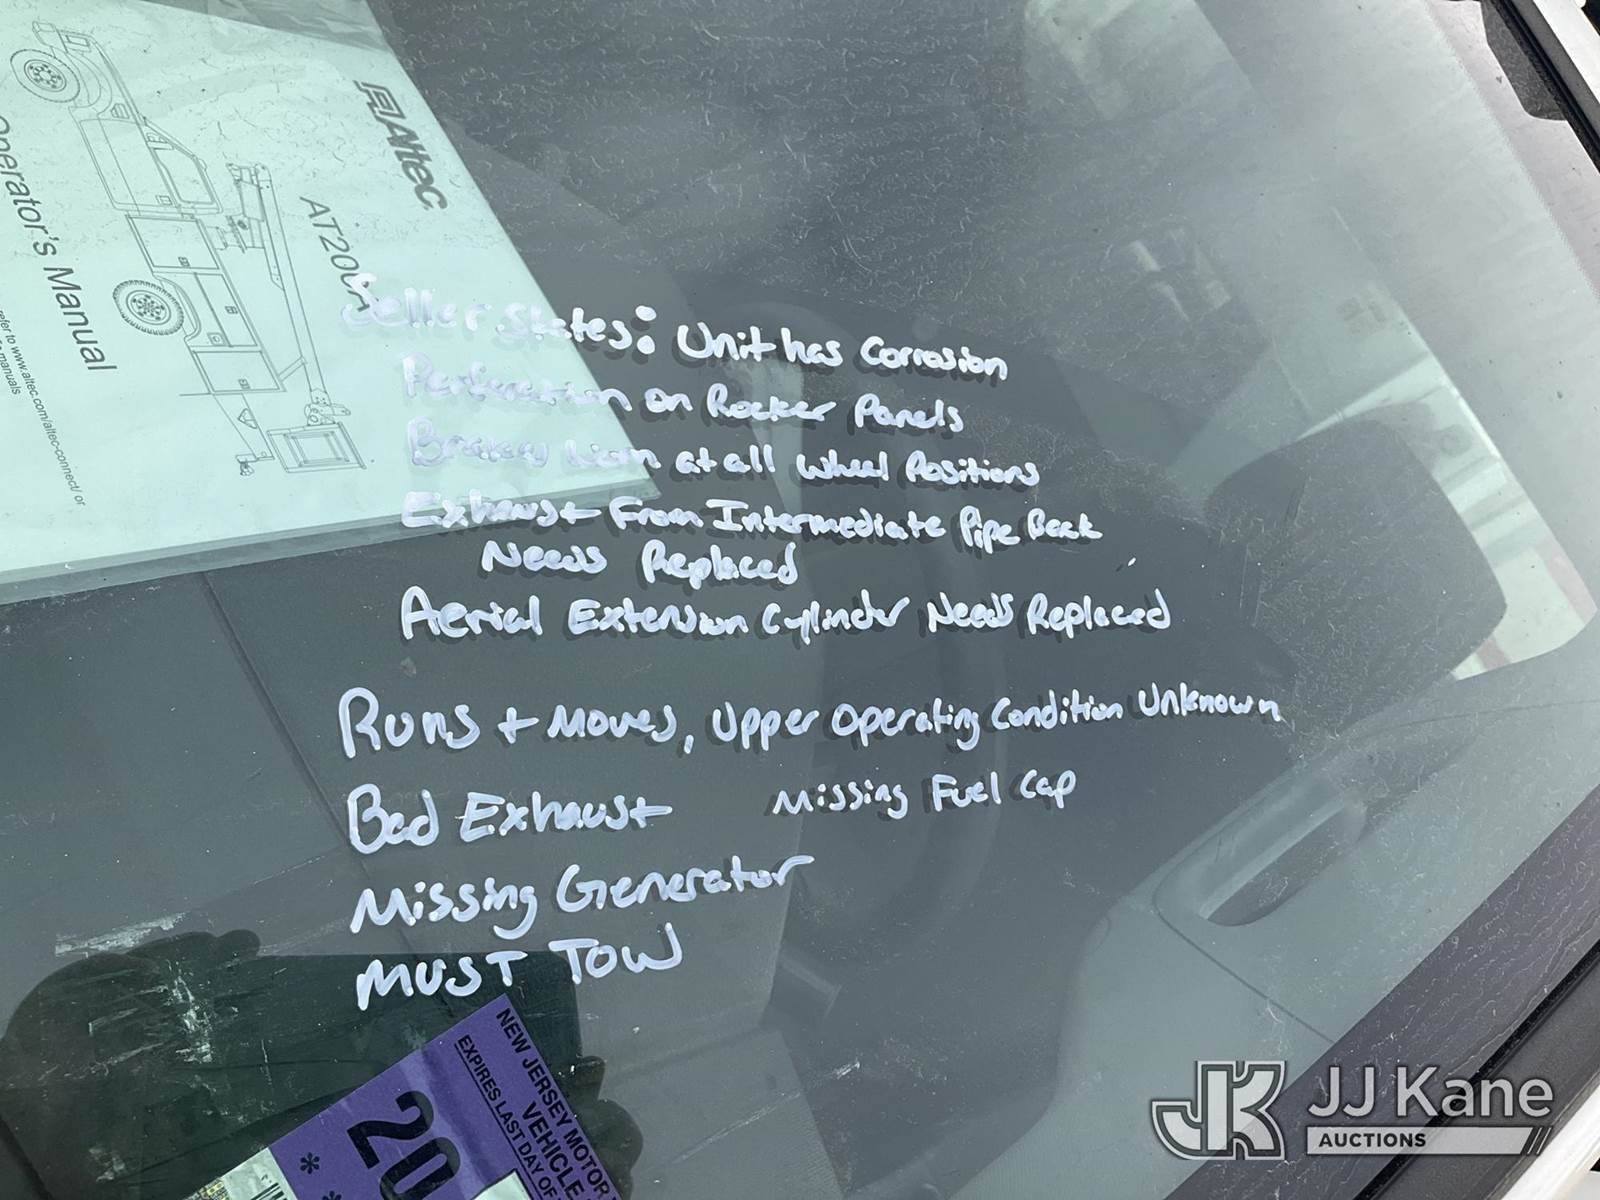 Altec
AT200A
Operator's Manual
refer to www.altec.com/altec-connect/ or
manuals
Seller States: Unit has Corrosion
Perforation on Rocker Panels
Brakes Worn at all Wheel Positions
Exhaust From Intermediate Pipe Back
Needs Replaced
Aerial Extension Cylinder Needs Replaced
Runs + Moves, Upper Operating Condition Unknown
Bad Exhaust Missing Fuel Cap
Missing Generator
MUST TOW
NEW JERSEY MOTOR
VEHICLE
EXPIRES LAST DAY OF
20
JK JJ Kane
AUCTIONS